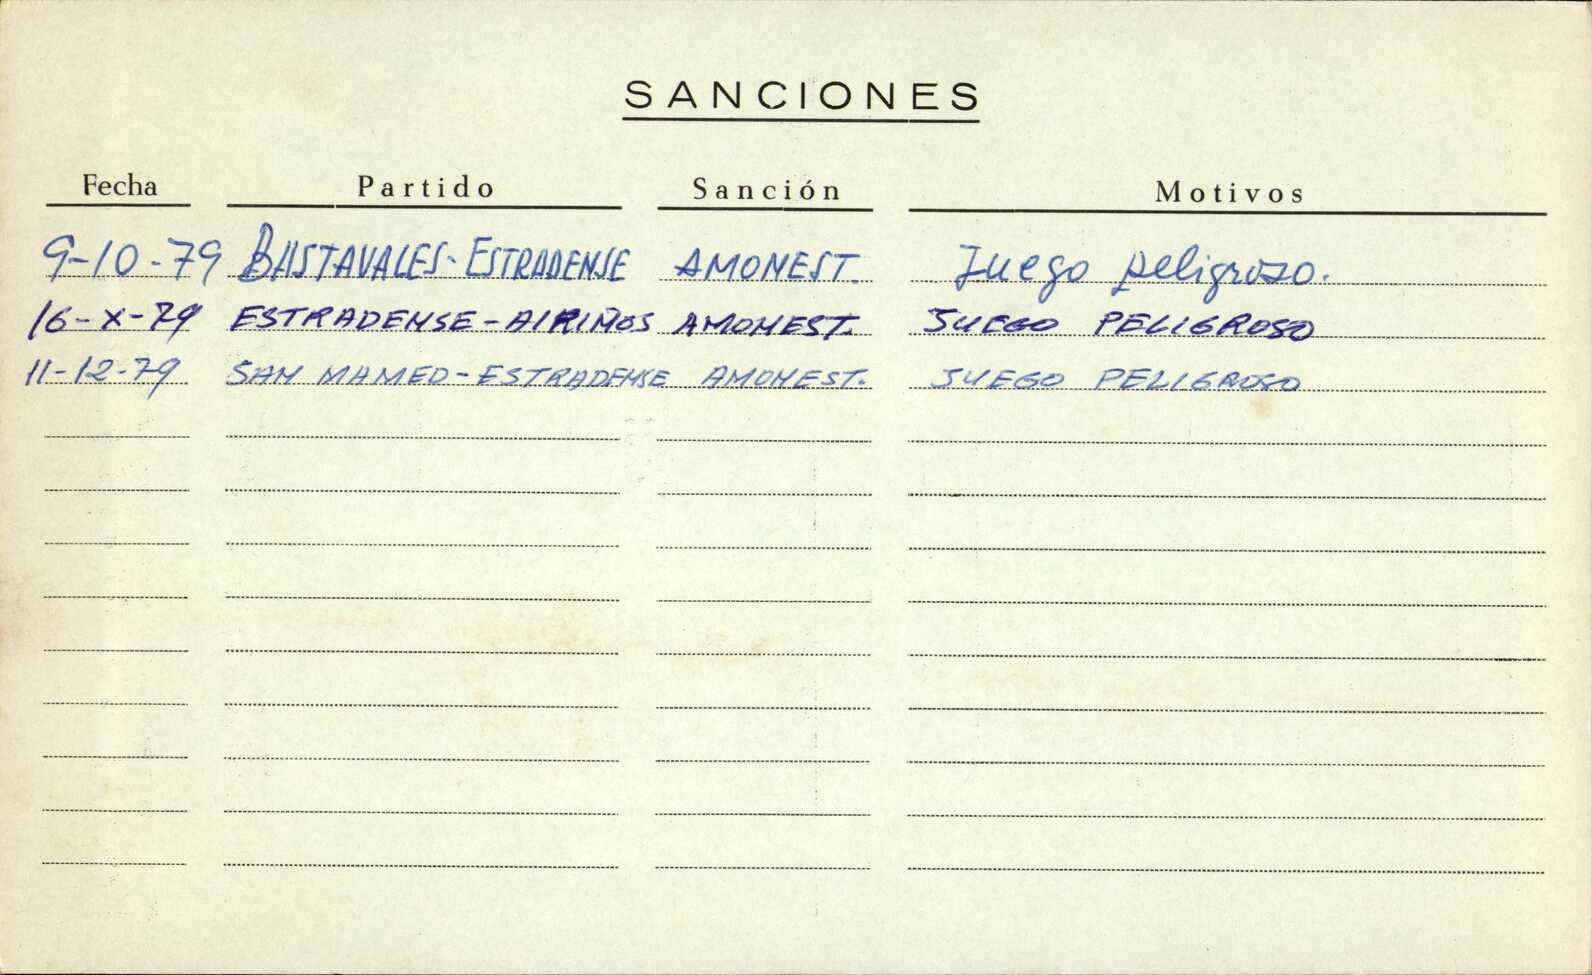 SANCIONES
Fecha Partido Sanción Motivos
9-10-79 BASTAVALES-ESTRADENSE AMONEST. Juego peligroso.
16-X-79 ESTRADENSE-AIRIÑOS AMONEST. JUEGO PELIGROSO
11-12-79 SAN MAMED-ESTRADENSE AMONEST. JUEGO PELIGROSO